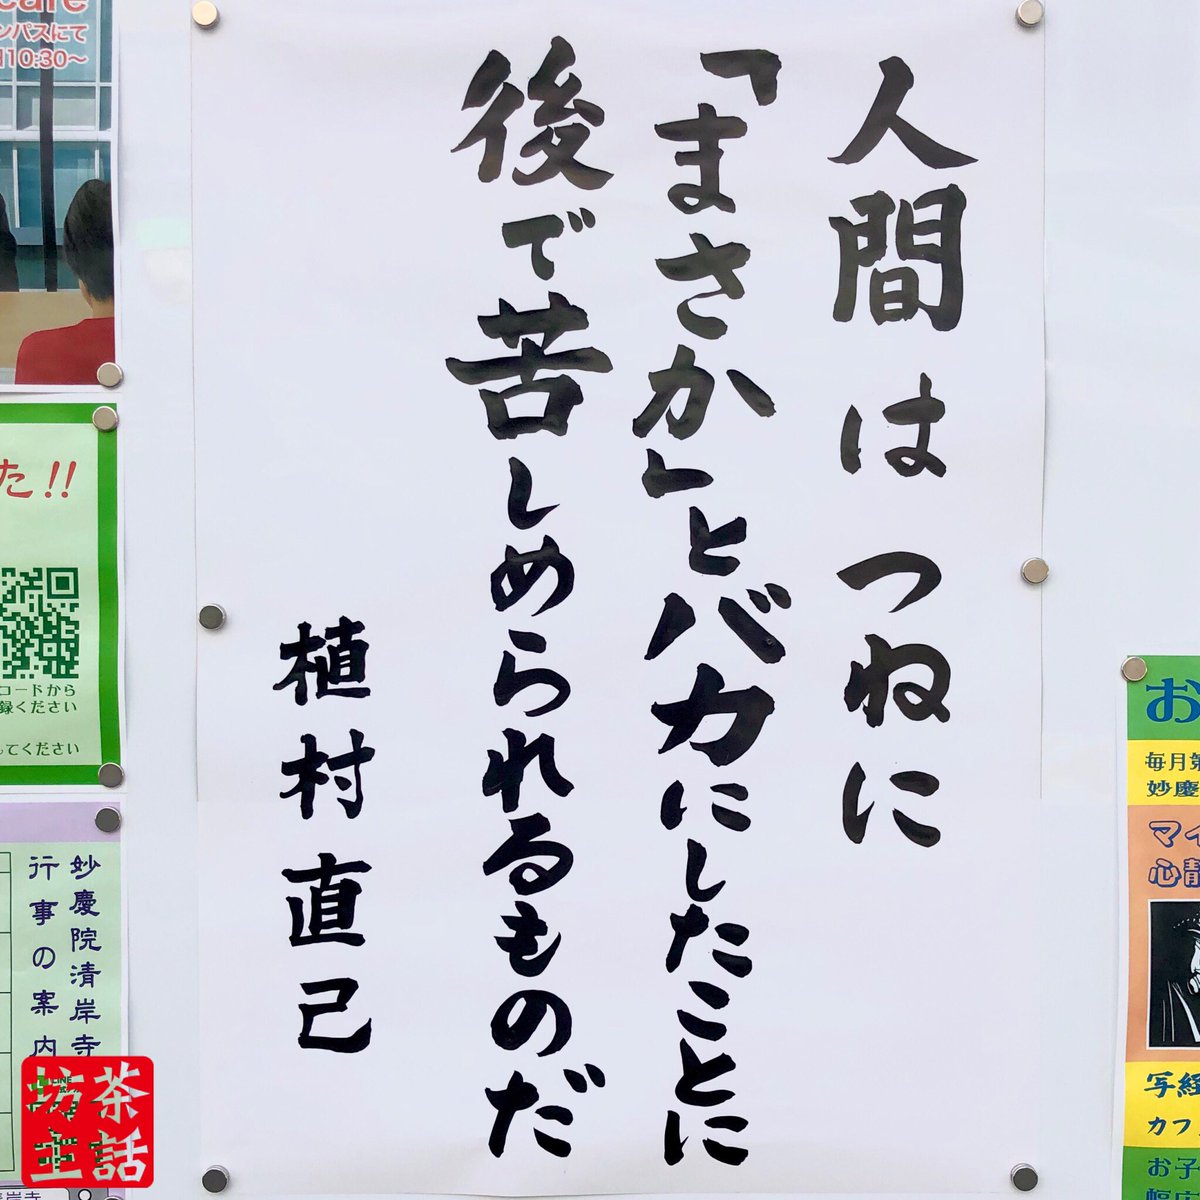 人間はつねに
「まさか」とバカにしたことに
後で苦しめられるものだ
植村直己
cafe
ンパスにて
10:30〜
た!!
コードから
録ください
してください
妙慶院清岸寺
行事の案内
茶話
坊主
お
毎月第
妙慶
マイ
心静
写経
カフ
お子